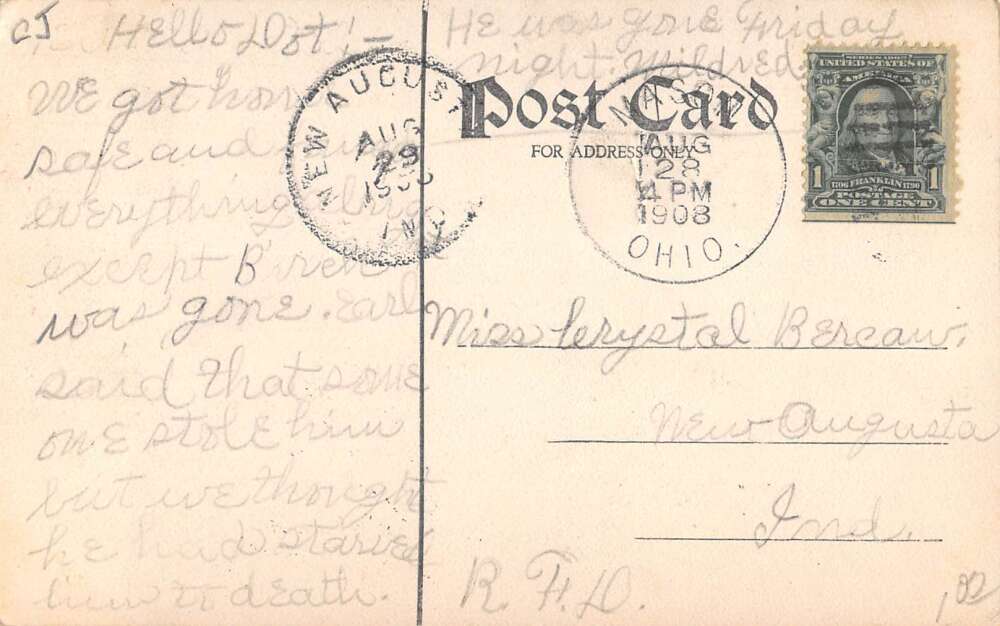 CJ
Hello Dot! –
We got home
safe and
everything
except
was gone. Earl
said that some
one stole him
but we thought
he had starved
him to death.
He was gone Friday
night. Mildred.
Post Card
FOR ADDRESS ONLY
NEW AUGUST
AUG
29
IND
NASO
AUG
28
4 PM
1908
OHIO.
SERIES 1902
UNITED STATES OF
AMERICA
1 1706 FRANKLIN 1790 1
POSTAGE
ONE CENT
Miss Crystal Bercaw.
New Augusta
Ind.
R. F. D.